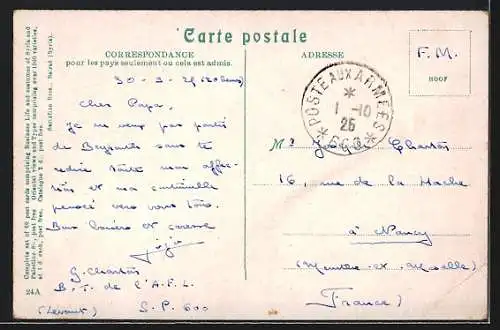 Carte postale
CORRESPONDANCE
pour les pays seulement ou cela est admis.
ADRESSE
F. M.
POSTE AUX ARMEES
1-10
25
600
Cher Papa,
Je ne veux pas partir
de Beyrouth sans te
redire toute mon affec-
tion et ma
pensée vers vous tous.
Bons baisers et caresse
jojo
G. Charton
B. T. de l'A.F.L.
(Levant) S.P. 600
Mr Joseph Charton
16, rue de la Hache
à Nancy
(Meurthe et Moselle)
(France)
Complete set of 60 post cards comprising Business Life and costumes of Syria and
Palestine Fr., post free Oriental views and Types comprising over 1500 varieties,
at 1 d. each, post free. Catalogue 3 d. post free.
Sarrafian Bros., Beirut (Syria).
24A